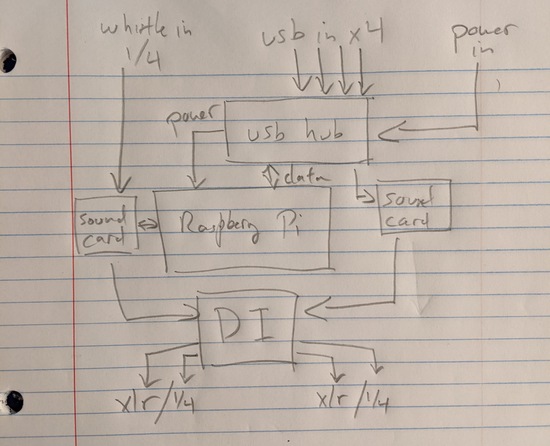 whistle in
1/4
usb in x4
power
in
power
usb hub
data
sound
card
Raspberry Pi
sound
card
DI
xlr / 1/4
xlr / 1/4